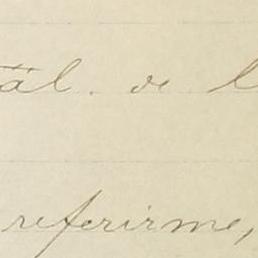 tál de l
referirme,